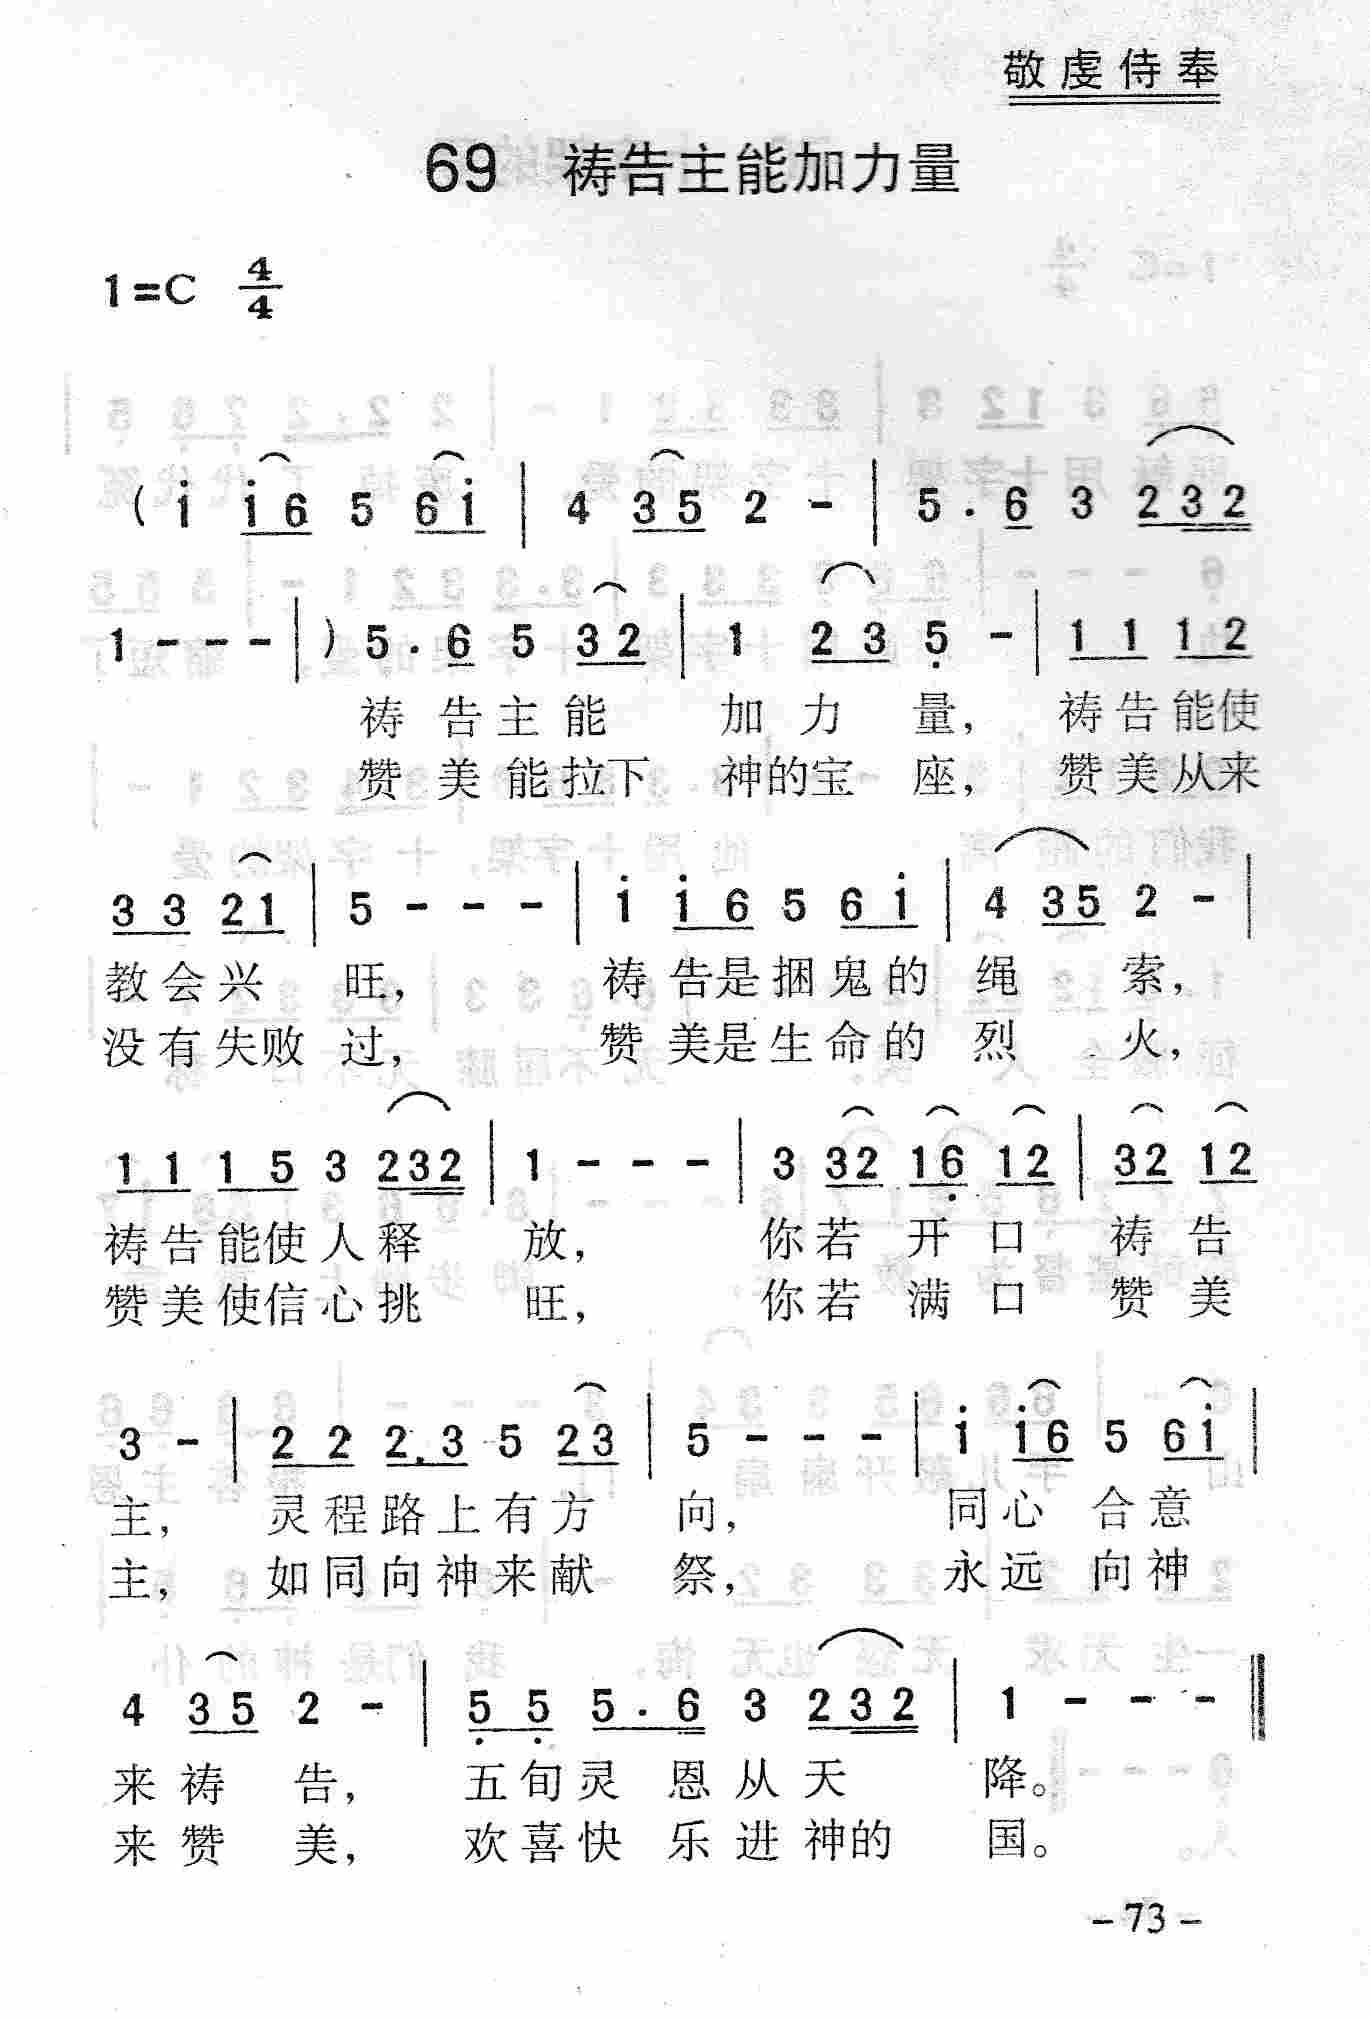 敬虔侍奉
69 祷告主能加力量
1=C 4/4
( i i6 5 6i | 4 35 2 - | 5 . 6 3 232
1 - - - | ) 5 . 6 5 32 | 1 23 5 - | 11 12
祷告主能 加力量, 祷告能使
赞美能拉下 神的宝座, 赞美从来
33 21 | 5 - - - | i i6 5 6i | 4 35 2 - |
教会兴旺, 祷告是捆鬼的绳索,
没有失败过, 赞美是生命的烈火,
11 15 3 232 | 1 - - - | 3 32 16 12 | 32 12
祷告能使人释放, 你若开口祷告
赞美使信心挑旺, 你若满口赞美
3 - | 22 2.3 5 23 | 5 - - - | i i6 5 6i |
主, 灵程路上有方向, 同心合意
主, 如同向神来献祭, 永远向神
4 35 2 - | 55 5.6 3 232 | 1 - - - ‖
来祷告, 五旬灵恩从天降。
来赞美, 欢喜快乐进神的国。
-73-